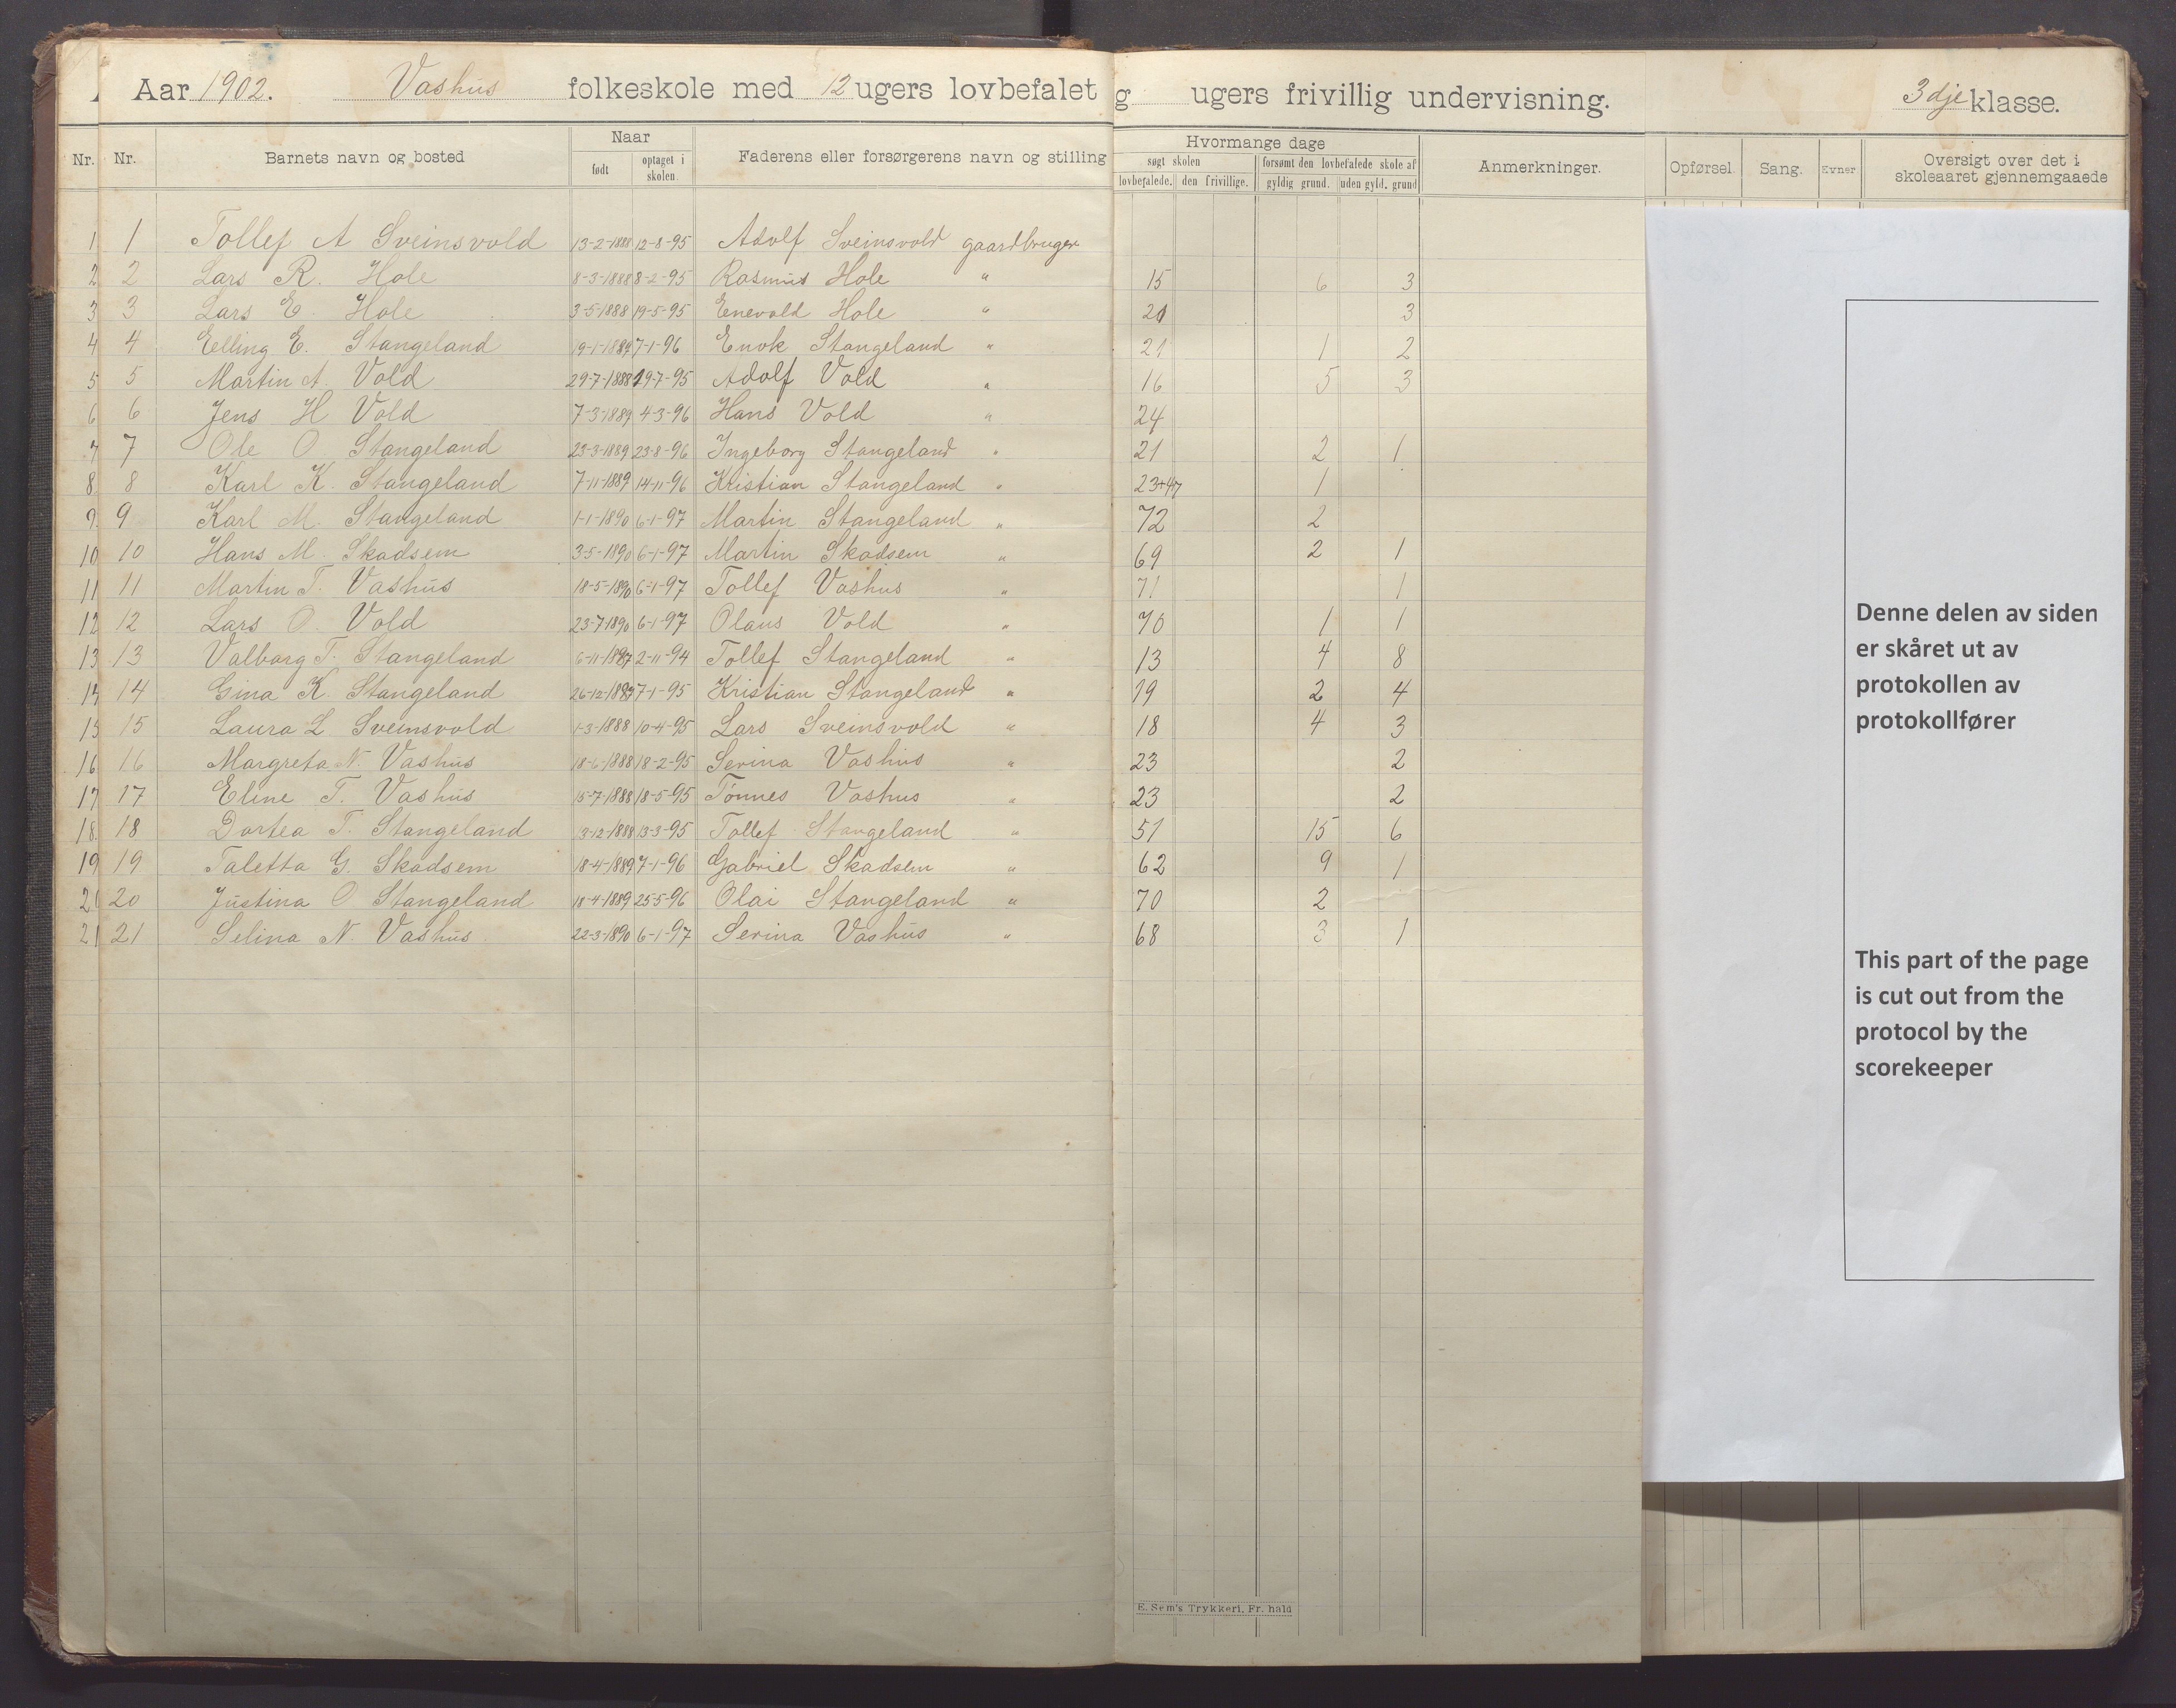 Aar 1902. Vashus folkeskole med 12 ugers lovbefalet g ugers frivillig undervisning. 3dje klasse.
Nr. Nr. Barnets navn og bosted Naar født optaget i skolen. Faderens eller forsørgerens navn og stilling Hvormange dage søgt skolen lovbefalede. den frivillige. forsømt den lovbefalede skole af gyldig grund. uden gyld. grund Anmerkninger. Opførsel. Sang. Evner Oversigt over det i skoleaaret gjennemgaaede
1 1 Tollef A Sveinsvold 13-2-1888 12-8-95 Adolf Sveinsvold gaardbruger
2 2 Lars R. Hole 8-3-1888 8-2-95 Rasmus Hole " 15 6 3
3 3 Lars E. Hole 3-5-1888 19-5-95 Enevold Hole " 20 3
4 4 Elling E. Stangeland 19-1-1889 7-1-96 Enok Stangeland " 21 1 2
5 5 Martin A. Vold 29-7-1888 29-7-95 Adolf Vold " 16 5 3
6 6 Jens H Vold 7-3-1889 4-3-96 Hans Vold " 24
7 7 Ole O. Stangeland 23-3-1889 23-8-96 Ingeborg Stangeland " 21 2 1
8 8 Karl K. Stangeland 7-11-1889 14-11-96 Kristian Stangeland " 23+47 1
9 9 Karl M. Stangeland 1-1-1890 6-1-97 Martin Stangeland " 72 2
10 10 Hans M. Skadsem 3-5-1890 6-1-97 Martin Skadsem " 69 2 1
11 11 Martin T. Vashus 18-5-1890 6-1-97 Tollef Vashus " 71 1
12 12 Lars O. Vold 23-7-1890 6-1-97 Olaus Vold " 70 1 1
13 13 Valborg T. Stangeland 6-11-1887 2-11-94 Tollef Stangeland " 13 4 8
14 14 Gina K. Stangeland 26-12-1887 7-1-95 Kristian Stangeland " 19 2 4
15 15 Laura L Sveinsvold 1-3-1888 10-4-95 Lars Sveinsvold " 18 4 3
16 16 Margreta N. Vashus 18-6-1888 18-2-95 Serina Vashus " 23 2
17 17 Eline T. Vashus 15-7-1888 18-5-95 Tönnes Vashus " 23 2
18 18 Dortea T. Stangeland 13-12-1888 13-3-95 Tollef Stangeland " 51 15 6
19 19 Taletta G. Skadsem 18-4-1889 7-1-96 Gabriel Skadsem " 62 9 1
20 20 Justina O Stangeland 18-4-1889 25-5-96 Olai Stangeland " 70 2
21 21 Selina N. Vashus 22-3-1890 6-1-97 Serina Vashus " 68 3 1
Denne delen av siden
er skåret ut av
protokollen av
protokollfører
This part of the page
is cut out from the
protocol by the
scorekeeper
E. Sem's Trykkeri, Fr. hald